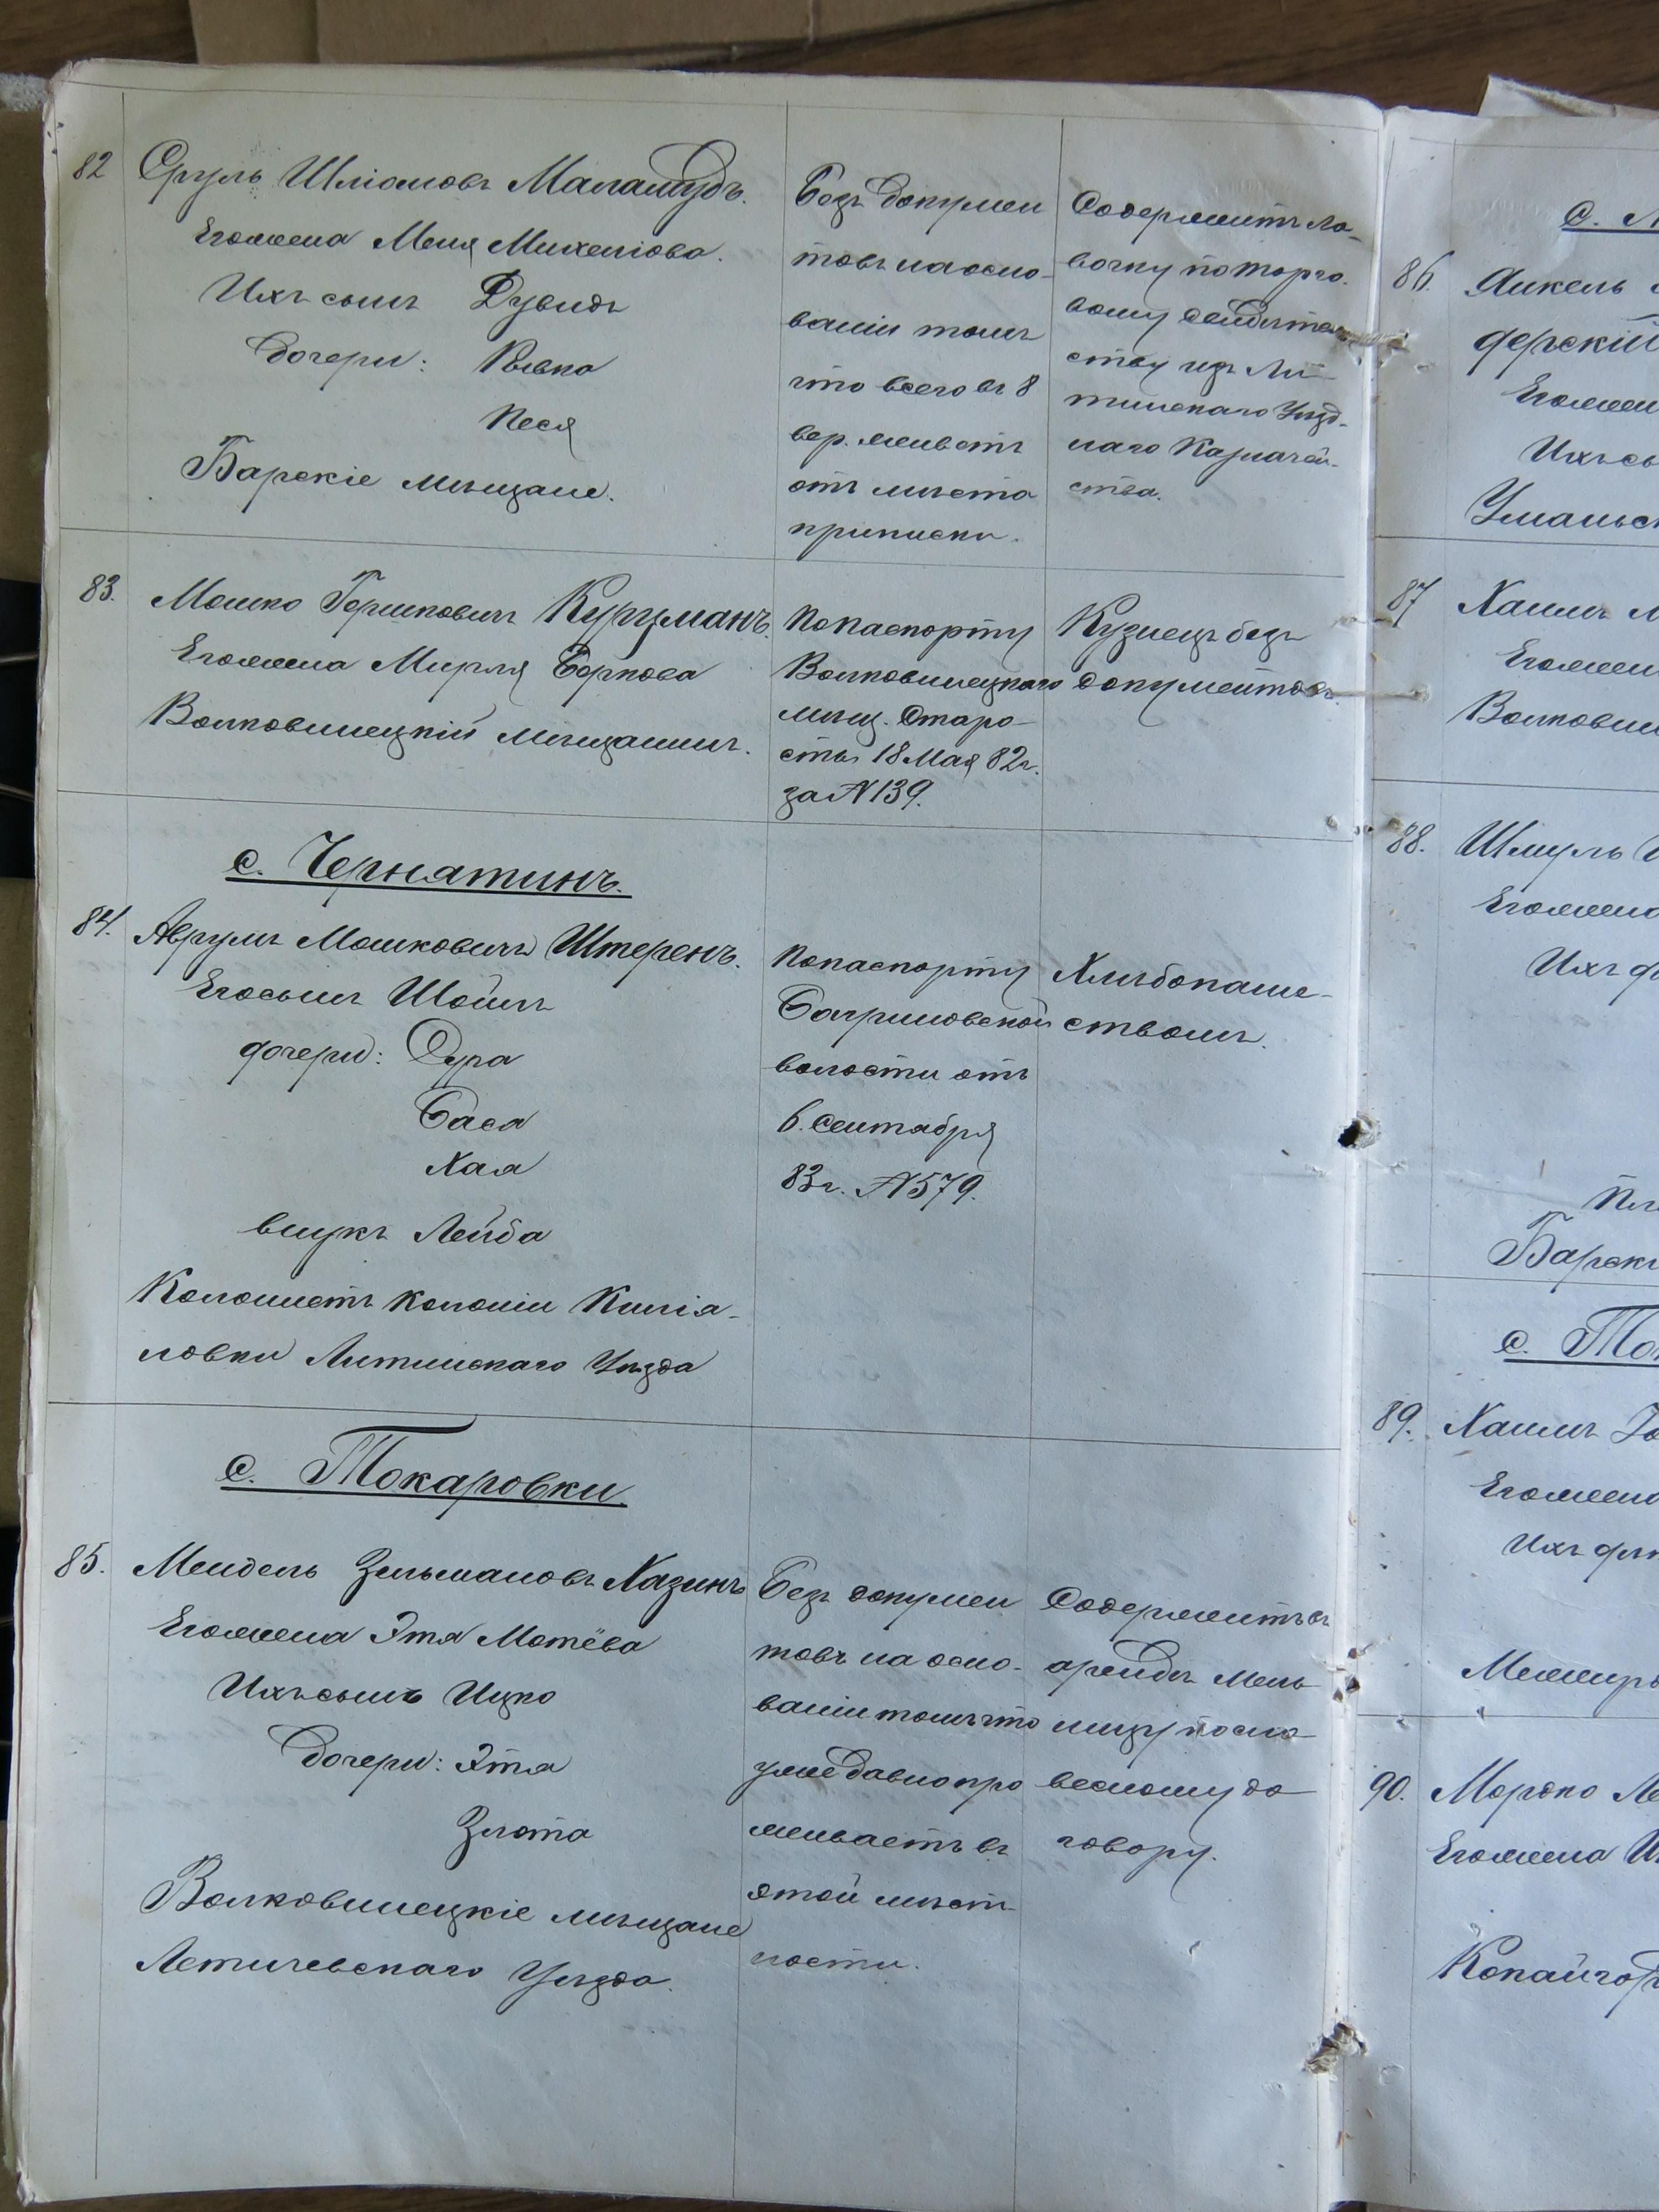 82 Сруль Шліомовъ Маламудъ.
Его жена Меня Михеліова.
Ихъ сынъ Дувидъ
Дочери: Ривка
Песя
Барскіе мѣщане.
Безъ докумен
товъ на осно-
ваніи томъ
что всего въ 8
вер. живетъ
отъ мѣста
приписки.
Содержитъ ла-
вочку по торго-
вому свидѣтель
ству изъ Ли-
тинскаго Уѣзд-
наго Казначей-
ства.
83. Мошко Гершковичъ Курцманъ.
Его жена Мирля Боркова
Волковинецкій мѣщанинъ.
По паспорту
Волковинецкаго
мѣщ. Старо-
сты 18 Мая 82 г.
за N 139.
Кузнецъ безъ
документовъ.
с. Чернятинъ.
84. Аврумъ Мошковичъ Штеренъ.
Его сынъ Шоимъ
дочери: Сура
Бася
Хая
внукъ Лейба
Колонистъ колоніи Кипія-
човки Литинскаго Уѣзда
По паспорту
Багриновской
волости отъ
6. Сентября
83 г. N 579.
Хлѣбопаше-
ствомъ.
с. Токаровки
85. Мендель Зельмановъ Хазинъ
Его жена Этя Мотёва
Ихъ сынъ Ицко
Дочери: Этя
Злота
Волковинецкіе мѣщане
Летичевскаго Уѣзда.
Безъ докумен
товъ на осно-
ваніи томъ что
уже давно про
живаетъ въ
этой мѣст-
ности.
Содержитъ въ
арендѣ мель
ницу по сло
весному до
говору.
86. Янкель
ферскій
Его жен
Ихъ сы
Уманьск
87 Хаимъ М
Его жен
Волковин
88. Шмуль
Его жена
Ихъ
Барск
с. То
89. Хаимъ
Его жена
Ихъ
Межиро
90. Мордко Ле
Его жена
Копайгор